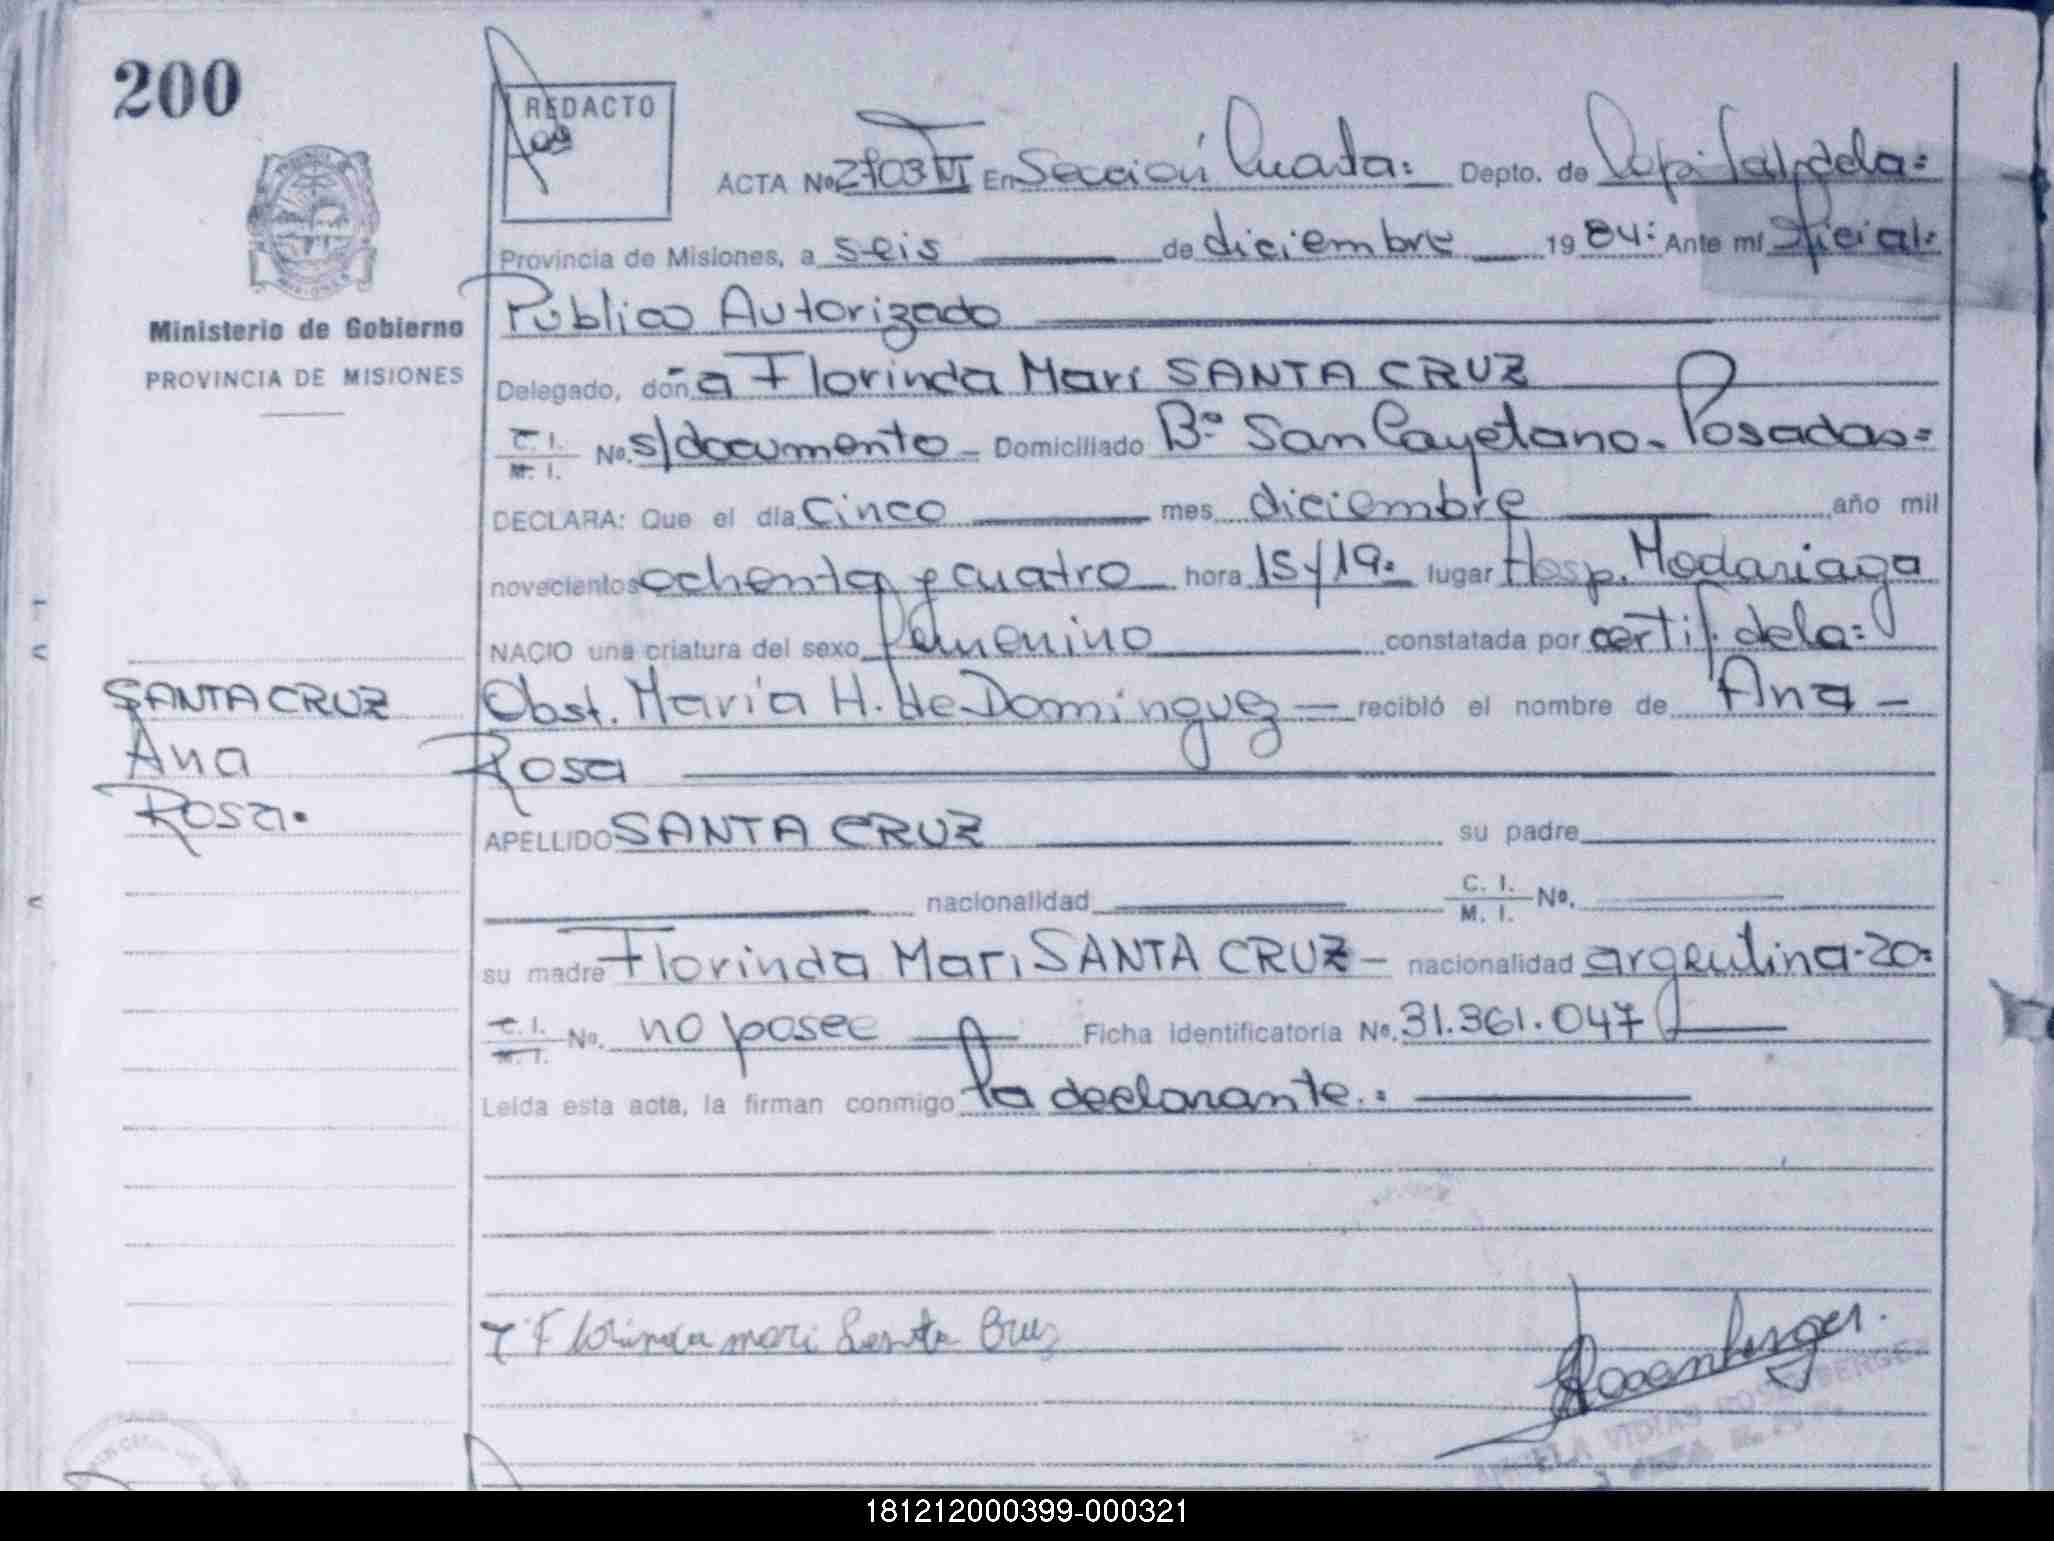 200
REDACTO
ACTA No. 2703 VI En Sección Cuarta: Depto. de Capital, de la=
Provincia de Misiones, a seis de diciembre 19 84: Ante mí Oficial=
Ministerio de Gobierno
PROVINCIA DE MISIONES
Público Autorizado
Delegado, doña Florinda Mari SANTA CRUZ
C. I. M. I. No. s/documento - Domiciliado Bº San Cayetano - Posadas=
DECLARA: Que el día cinco mes diciembre año mil
novecientos ochenta y cuatro hora 15 y 19 = lugar Hosp. Madariaga
NACIO una criatura del sexo femenino constatada por certif. de la=
SANTA CRUZ
Ana
Rosa.
Obst. María H. de Dominguez - recibló el nombre de Ana -
Rosa
APELLIDO SANTA CRUZ su padre
nacionalidad C. I. M. I. No.
su madre Florinda Mari SANTA CRUZ - nacionalidad argentina - 20=
C. I. M. I. No. no posee Ficha identificatoria No. 31.361.047
Leida esta acta, la firman conmigo la declarante.=
Florinda mari Santa Cruz
Rosenberger.
181212000399-000321